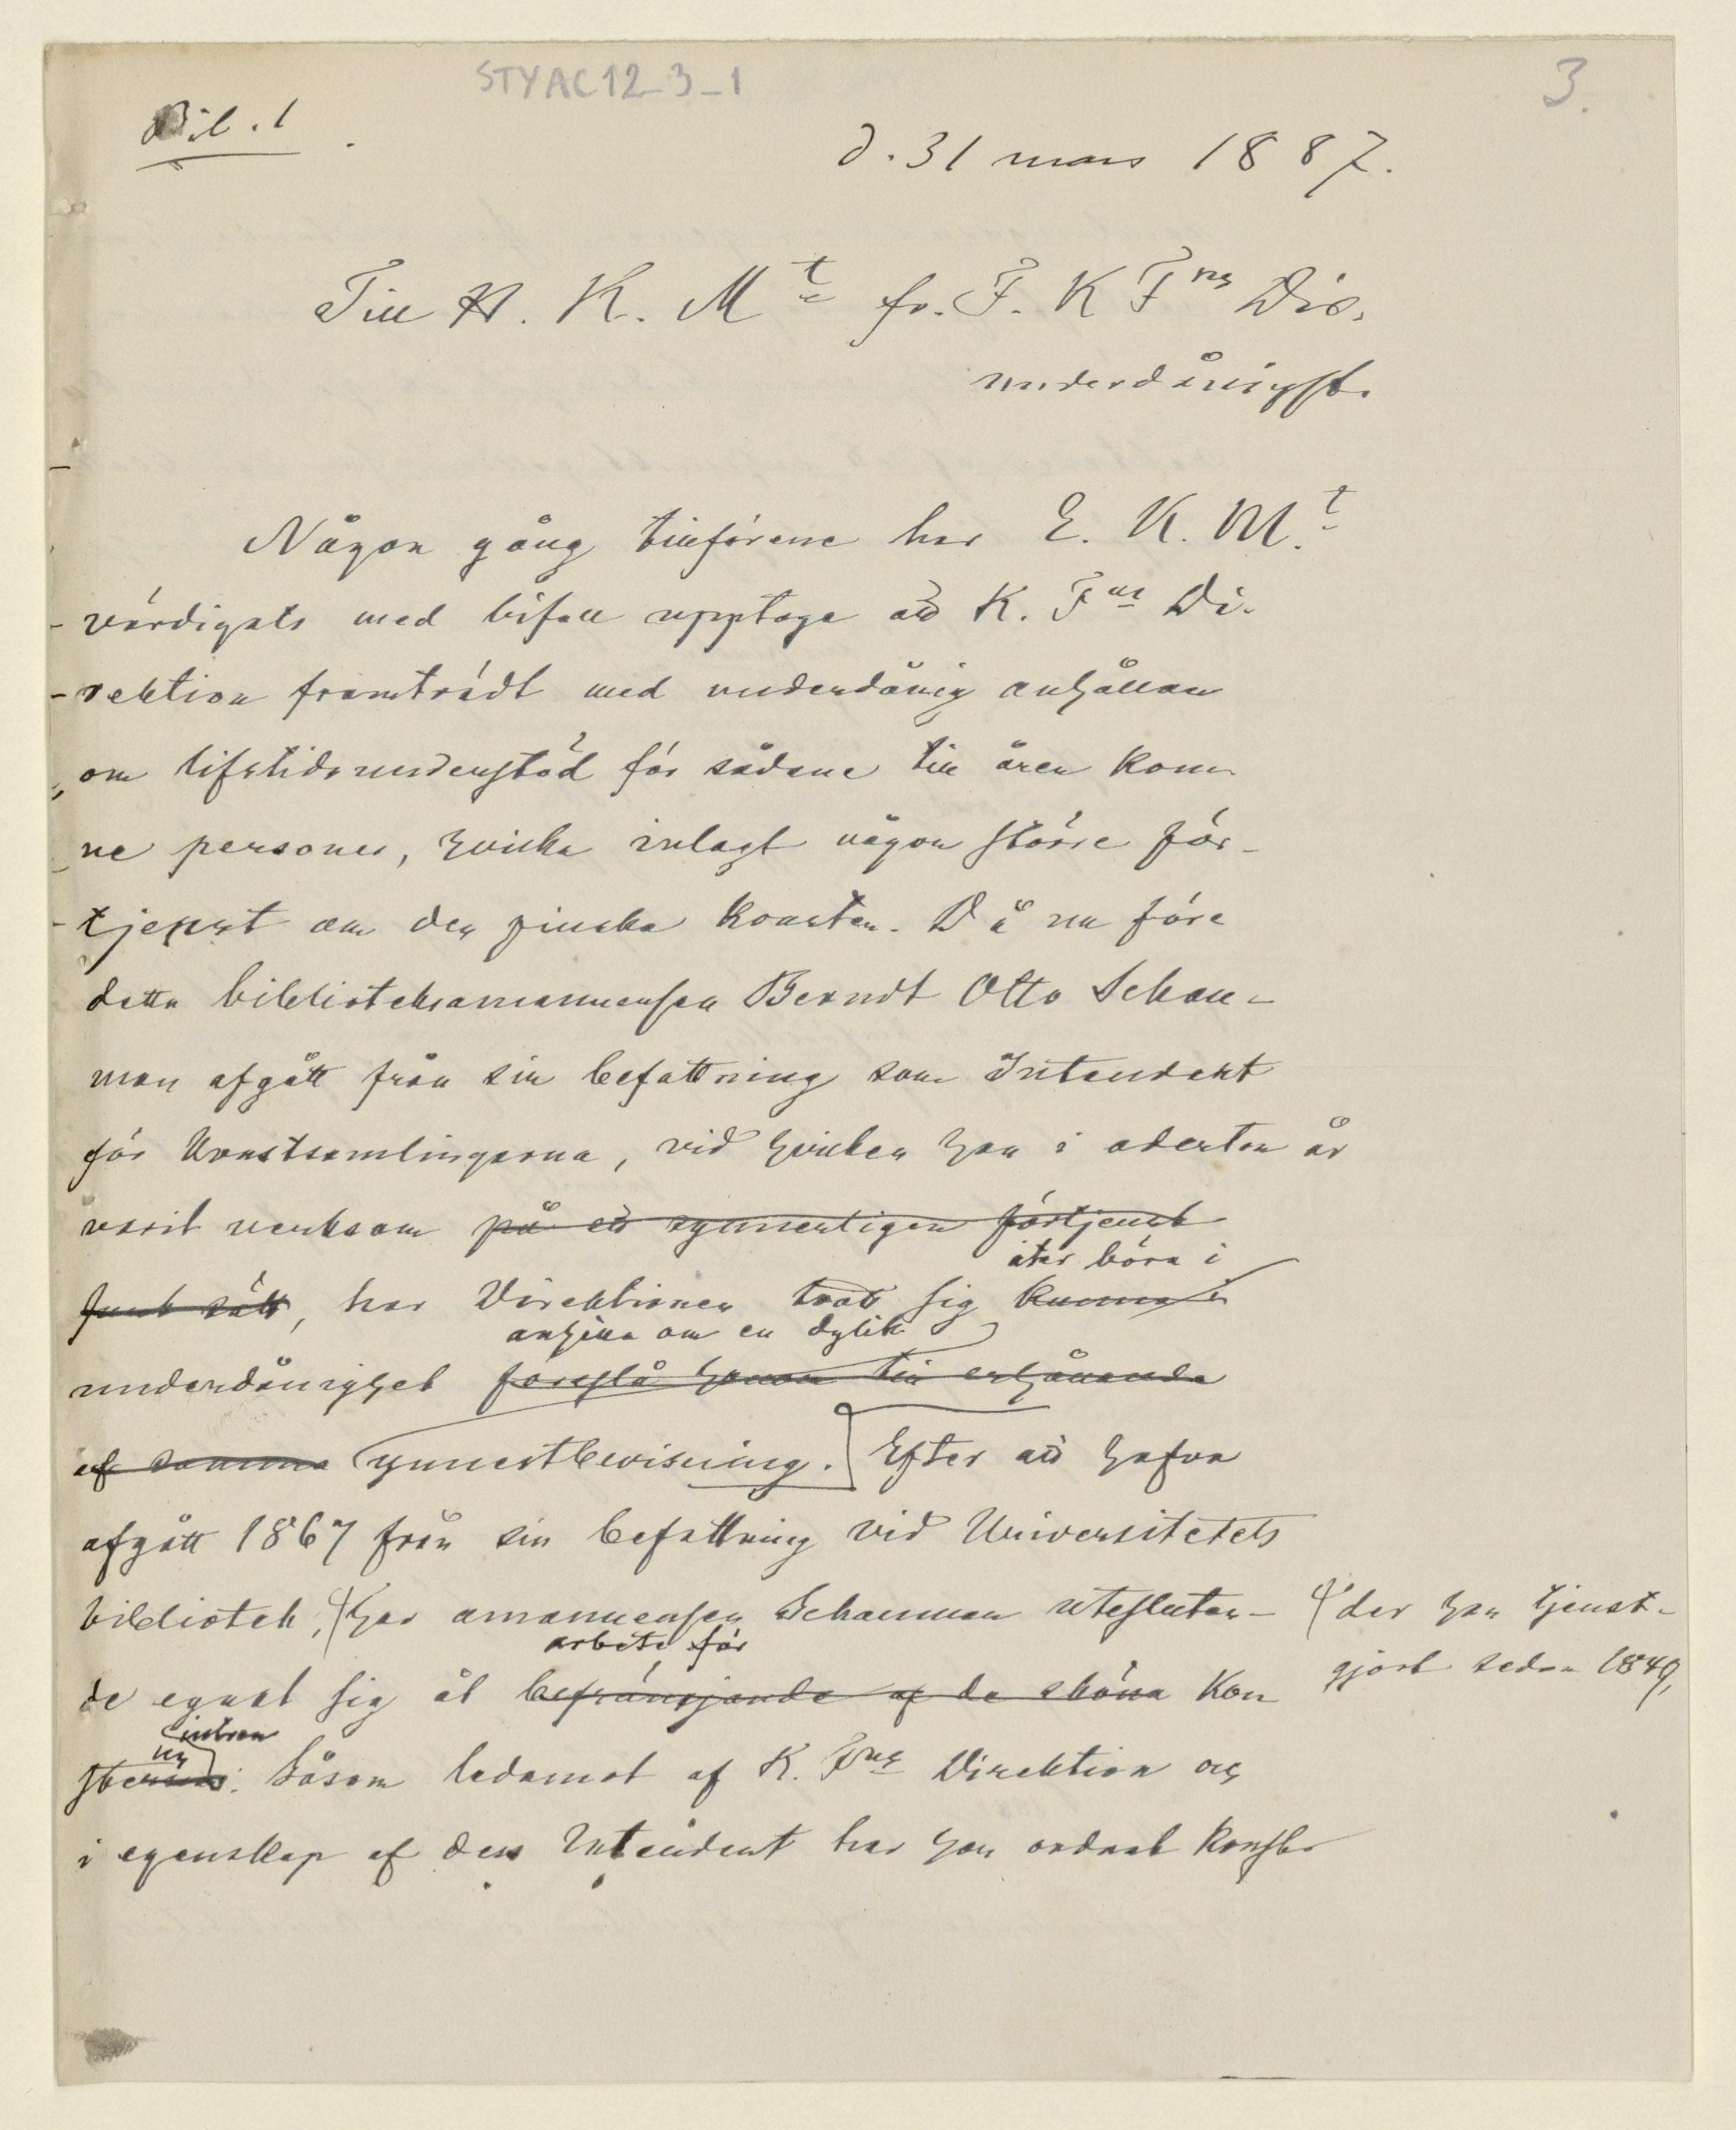 STYAC12_3_1
3.
Bil. 1
d. 31 mars 1887.
Till H. K. Mt fr. F. K Fns Dir.
underdånigst.
Någon gång tillförene har E. K. Mt
värdigats med bifall upptaga att K. Fns Di-
rektion framträdt med underdånig anhållan
om lifstidsunderstöd för sådane till åren kom-
ne personer, hvilka inlagt någon större för-
tjenst om den finska konsten. Då nu före
detta biblioteksamanuensen Berndt Otto Schau-
man afgått från sin befattning som Intendent
för Konstsamlingarna, vid hvilken han i aderton år
varit verksam på ett synnerligen förtjenst
åter böra i
fullt sätt, har Direktionen trott sig kunna i
anhålla om en dylik
underdånighet föreslå honom till erhållande
af samma ynnestbevisning. Efter att hafva
afgått 1867 från sin befattning vid Universitetets
bibliotek, har amanuensen Schauman uteslutan-
der han tjenst-
arbete för
gjort sedan 1849,
de egnat sig åt befrämjande af de sköna Kon
ny
sternas. Såsom ledamot af K. Fns Direktion och
i egenskap af dess Intendent har han ordnat konstr